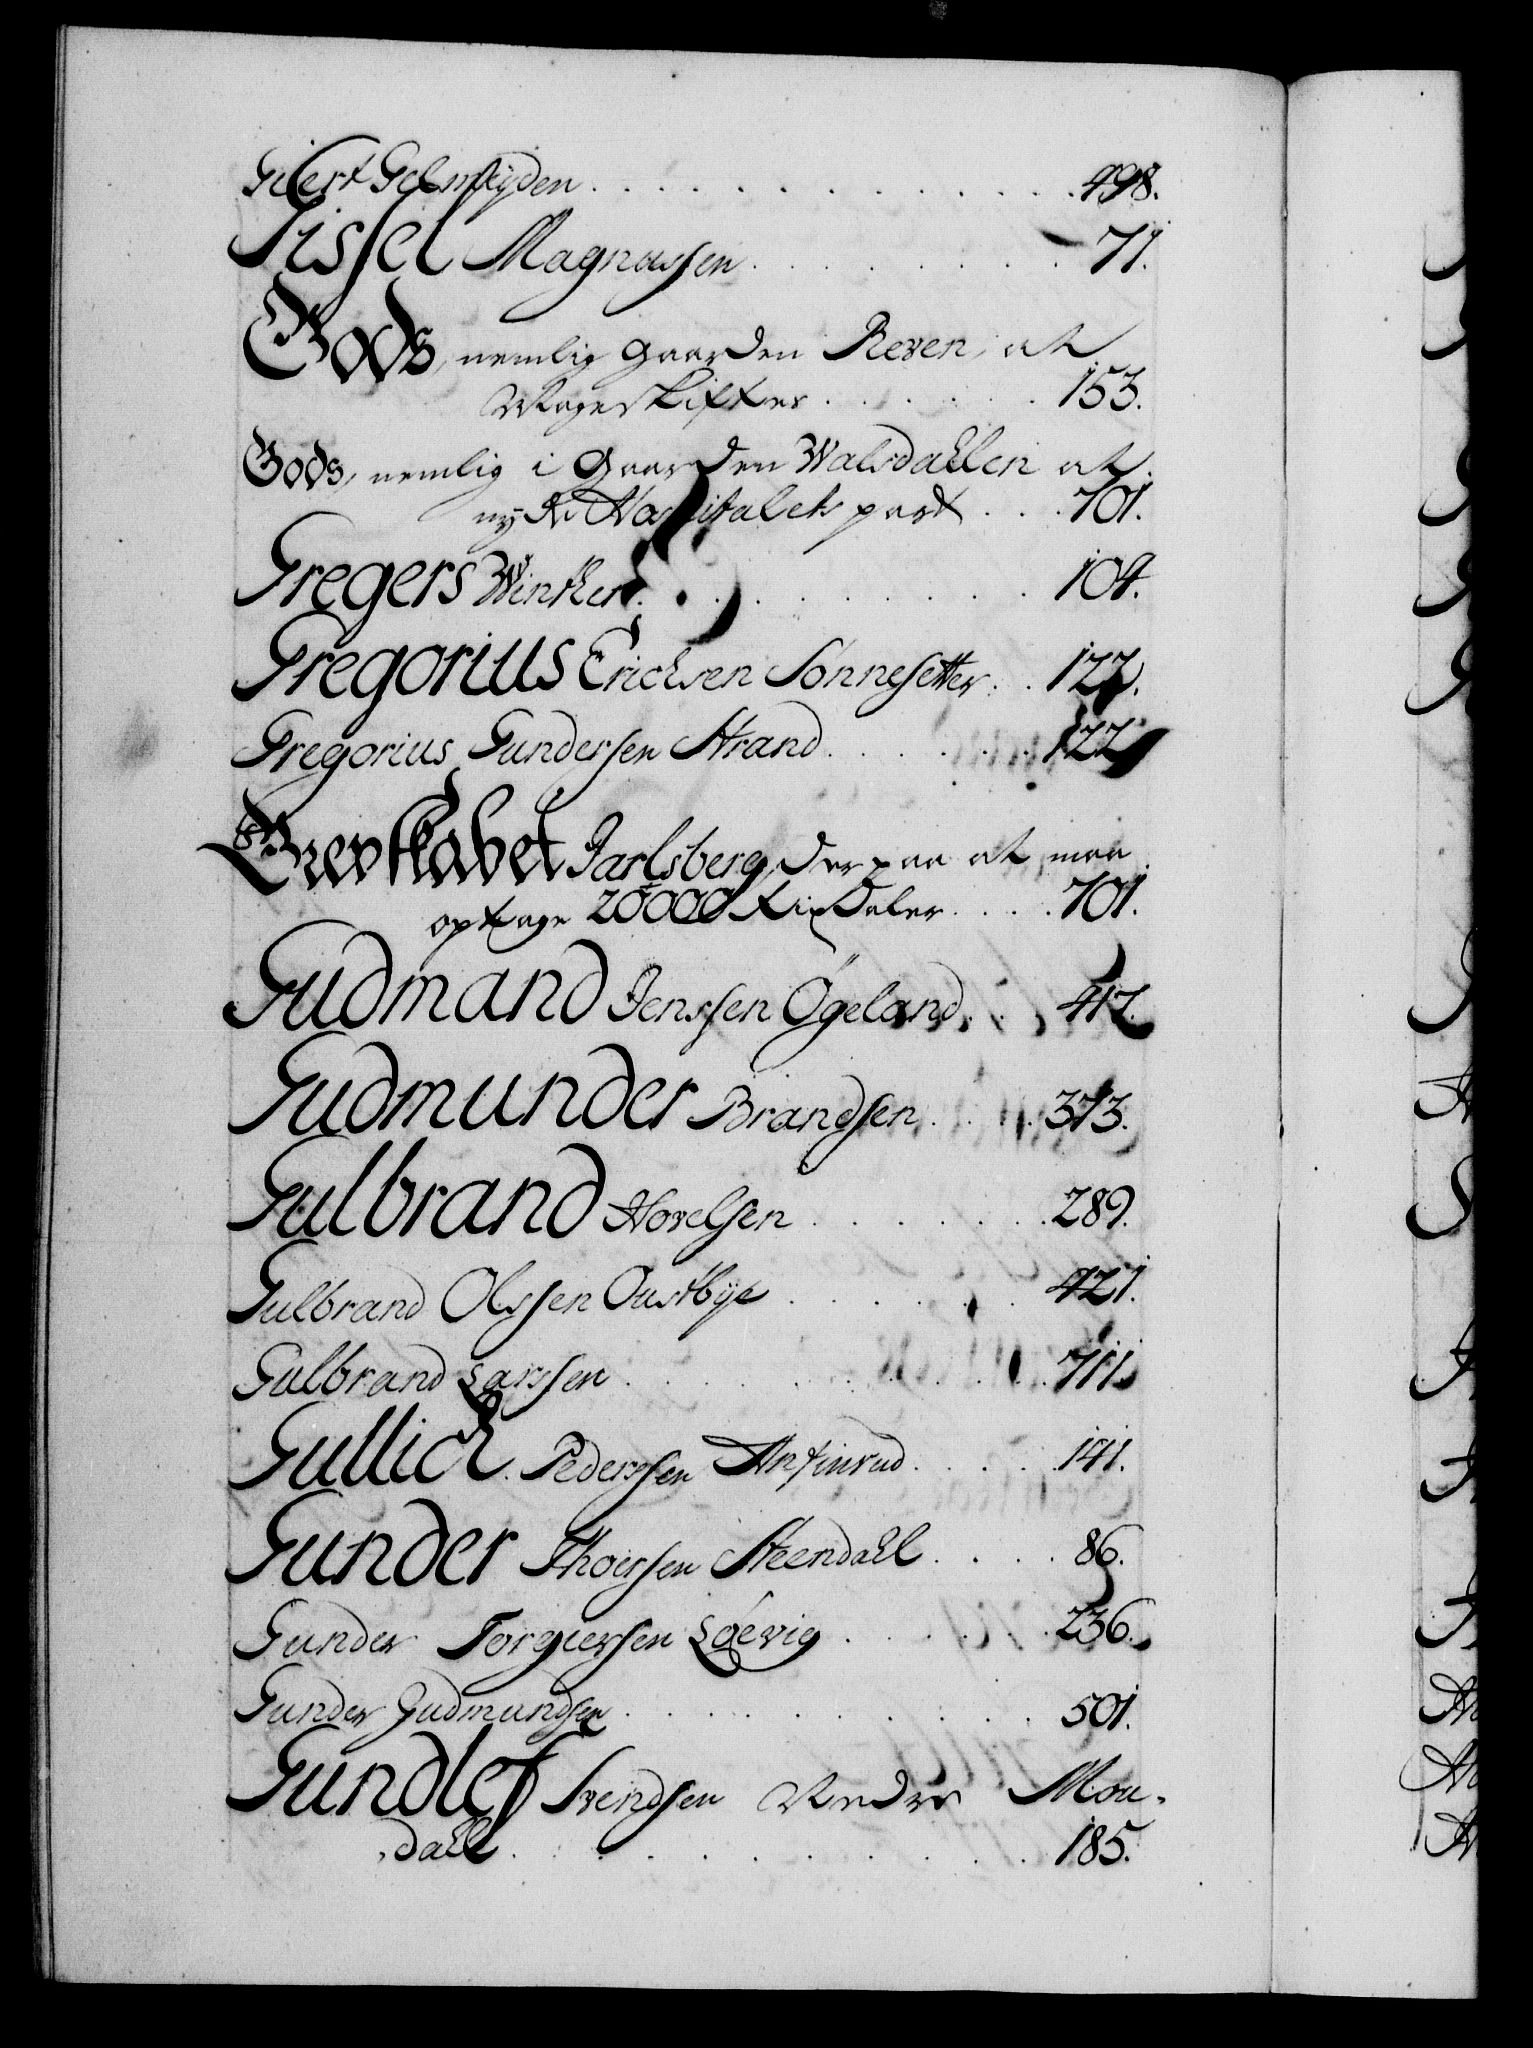 Giert Gelmeyden . . . . . . . . . . . . . 498.
Gissel Magnussen . . . . . . . . . 71.
Gods, nemlig Gaarden Reven, at
Mageskiftes . . . . . . 153.
Gods, nemlig i Gaarden Walsdahlen at
nyde Hospitalets part . . . 701.
Gregers Winther . . . . . . . . . . 104.
Gregorius Erichsen Sønnesetter . . 122.
Gregorius Gundersen Strand . . . . . 122.
Grevskabet Jarlsberg, derpaa at maa
optage 20000 Rixdaler . . . . 701.
Gudmand Jenssen Øgeland . . 417.
Gudmunder Brandsen . . . . 373.
Gulbrand Hovelsen . . . . . . . 289.
Gulbrand Olssen Oustbye . . . . . . 421.
Gulbrand Larssen . . . . . . . . . . 711.
Gullich Pederssen Anfinrud . . . . . 141.
Gunder Thoersen Steendahl . . . . 86.
Gunder Torgiersen Løevig . . . . . . 236.
Gunder Gudmundsen . . . . . . . . . . 501.
Gundlef Svendsen Nedre Mou-
dahl . . . . . . . . . . . . 185.